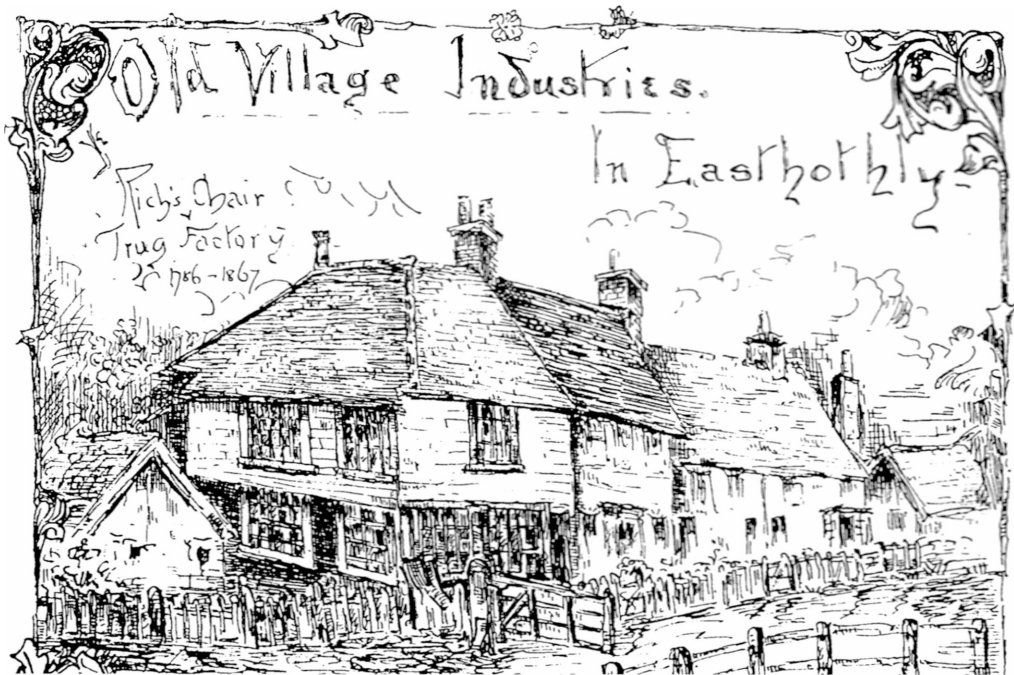 Old Village Industries.
In Easthothly
Rich's Chair
Trug Factory
1786-1867